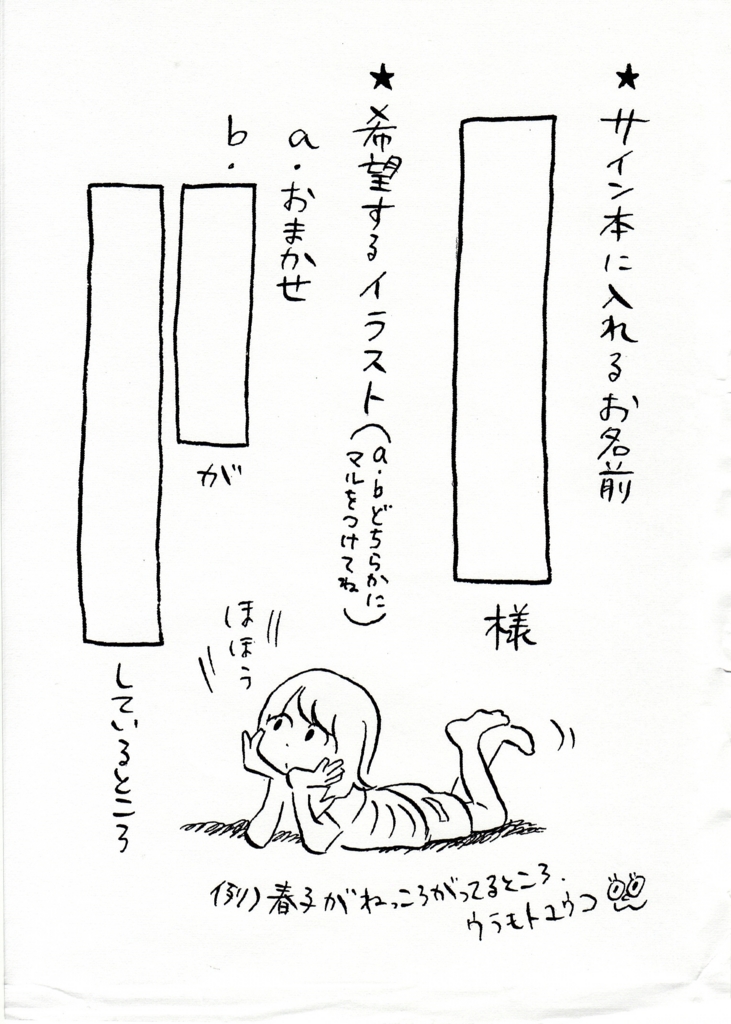 ★サイン本に入れるお名前
様
★希望するイラスト(a・bどちらかに
マルをつけてね)
a.おまかせ
b.
が
しているところ
ほほう
例)春子がねっころがってるところ.
ウラモトユウコ